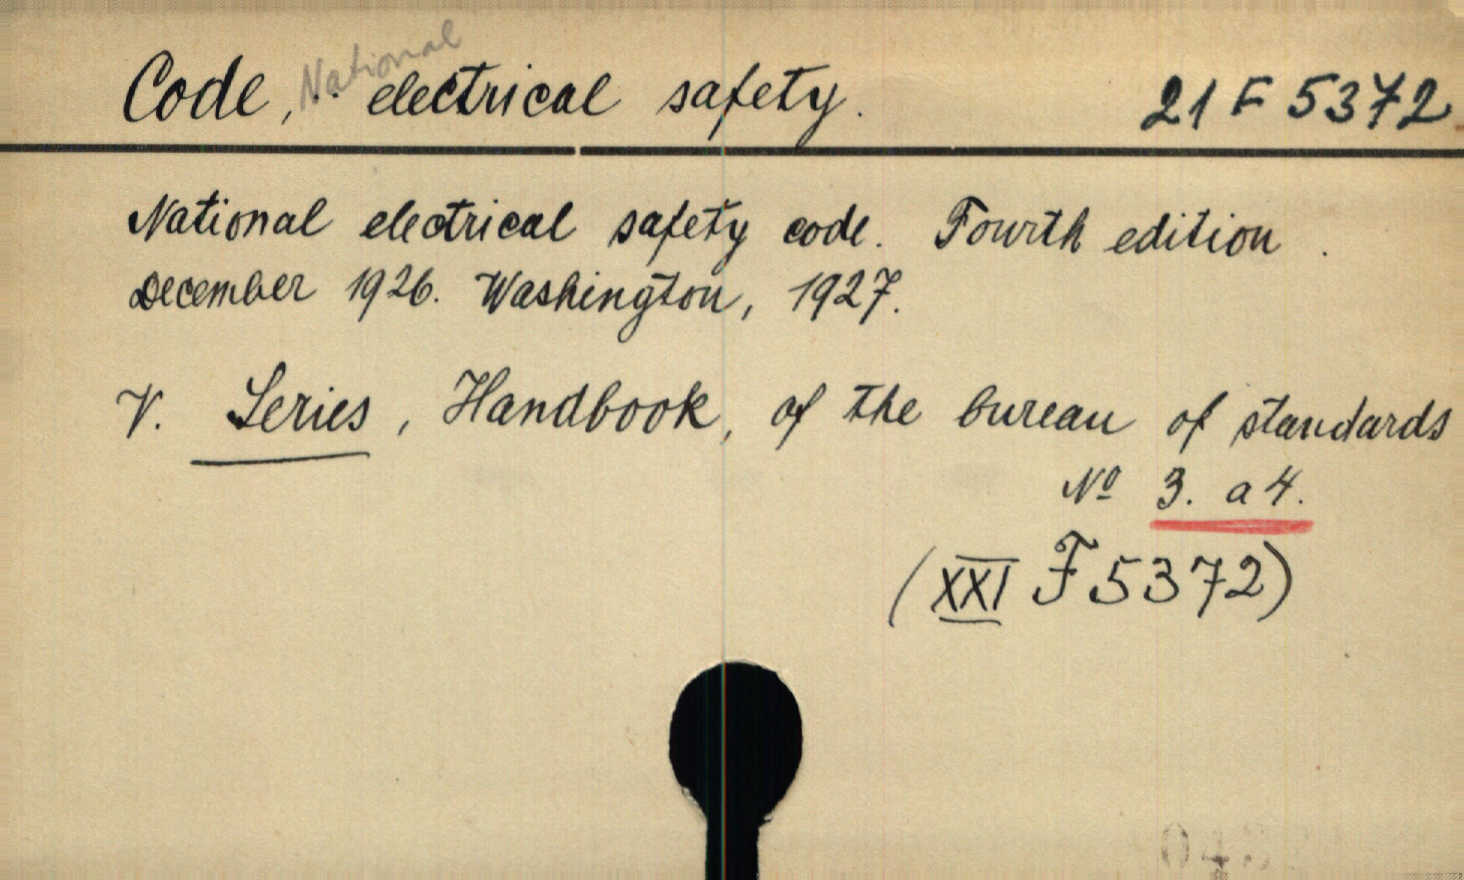 Code, National electrical safety. 21 F 5372
National electrical safety code. Fourth edition.
December 1926. Washington, 1927.
V. Series, Handbook, of the bureau of standards
Nº 3. a 4.
(XXI F 5372)